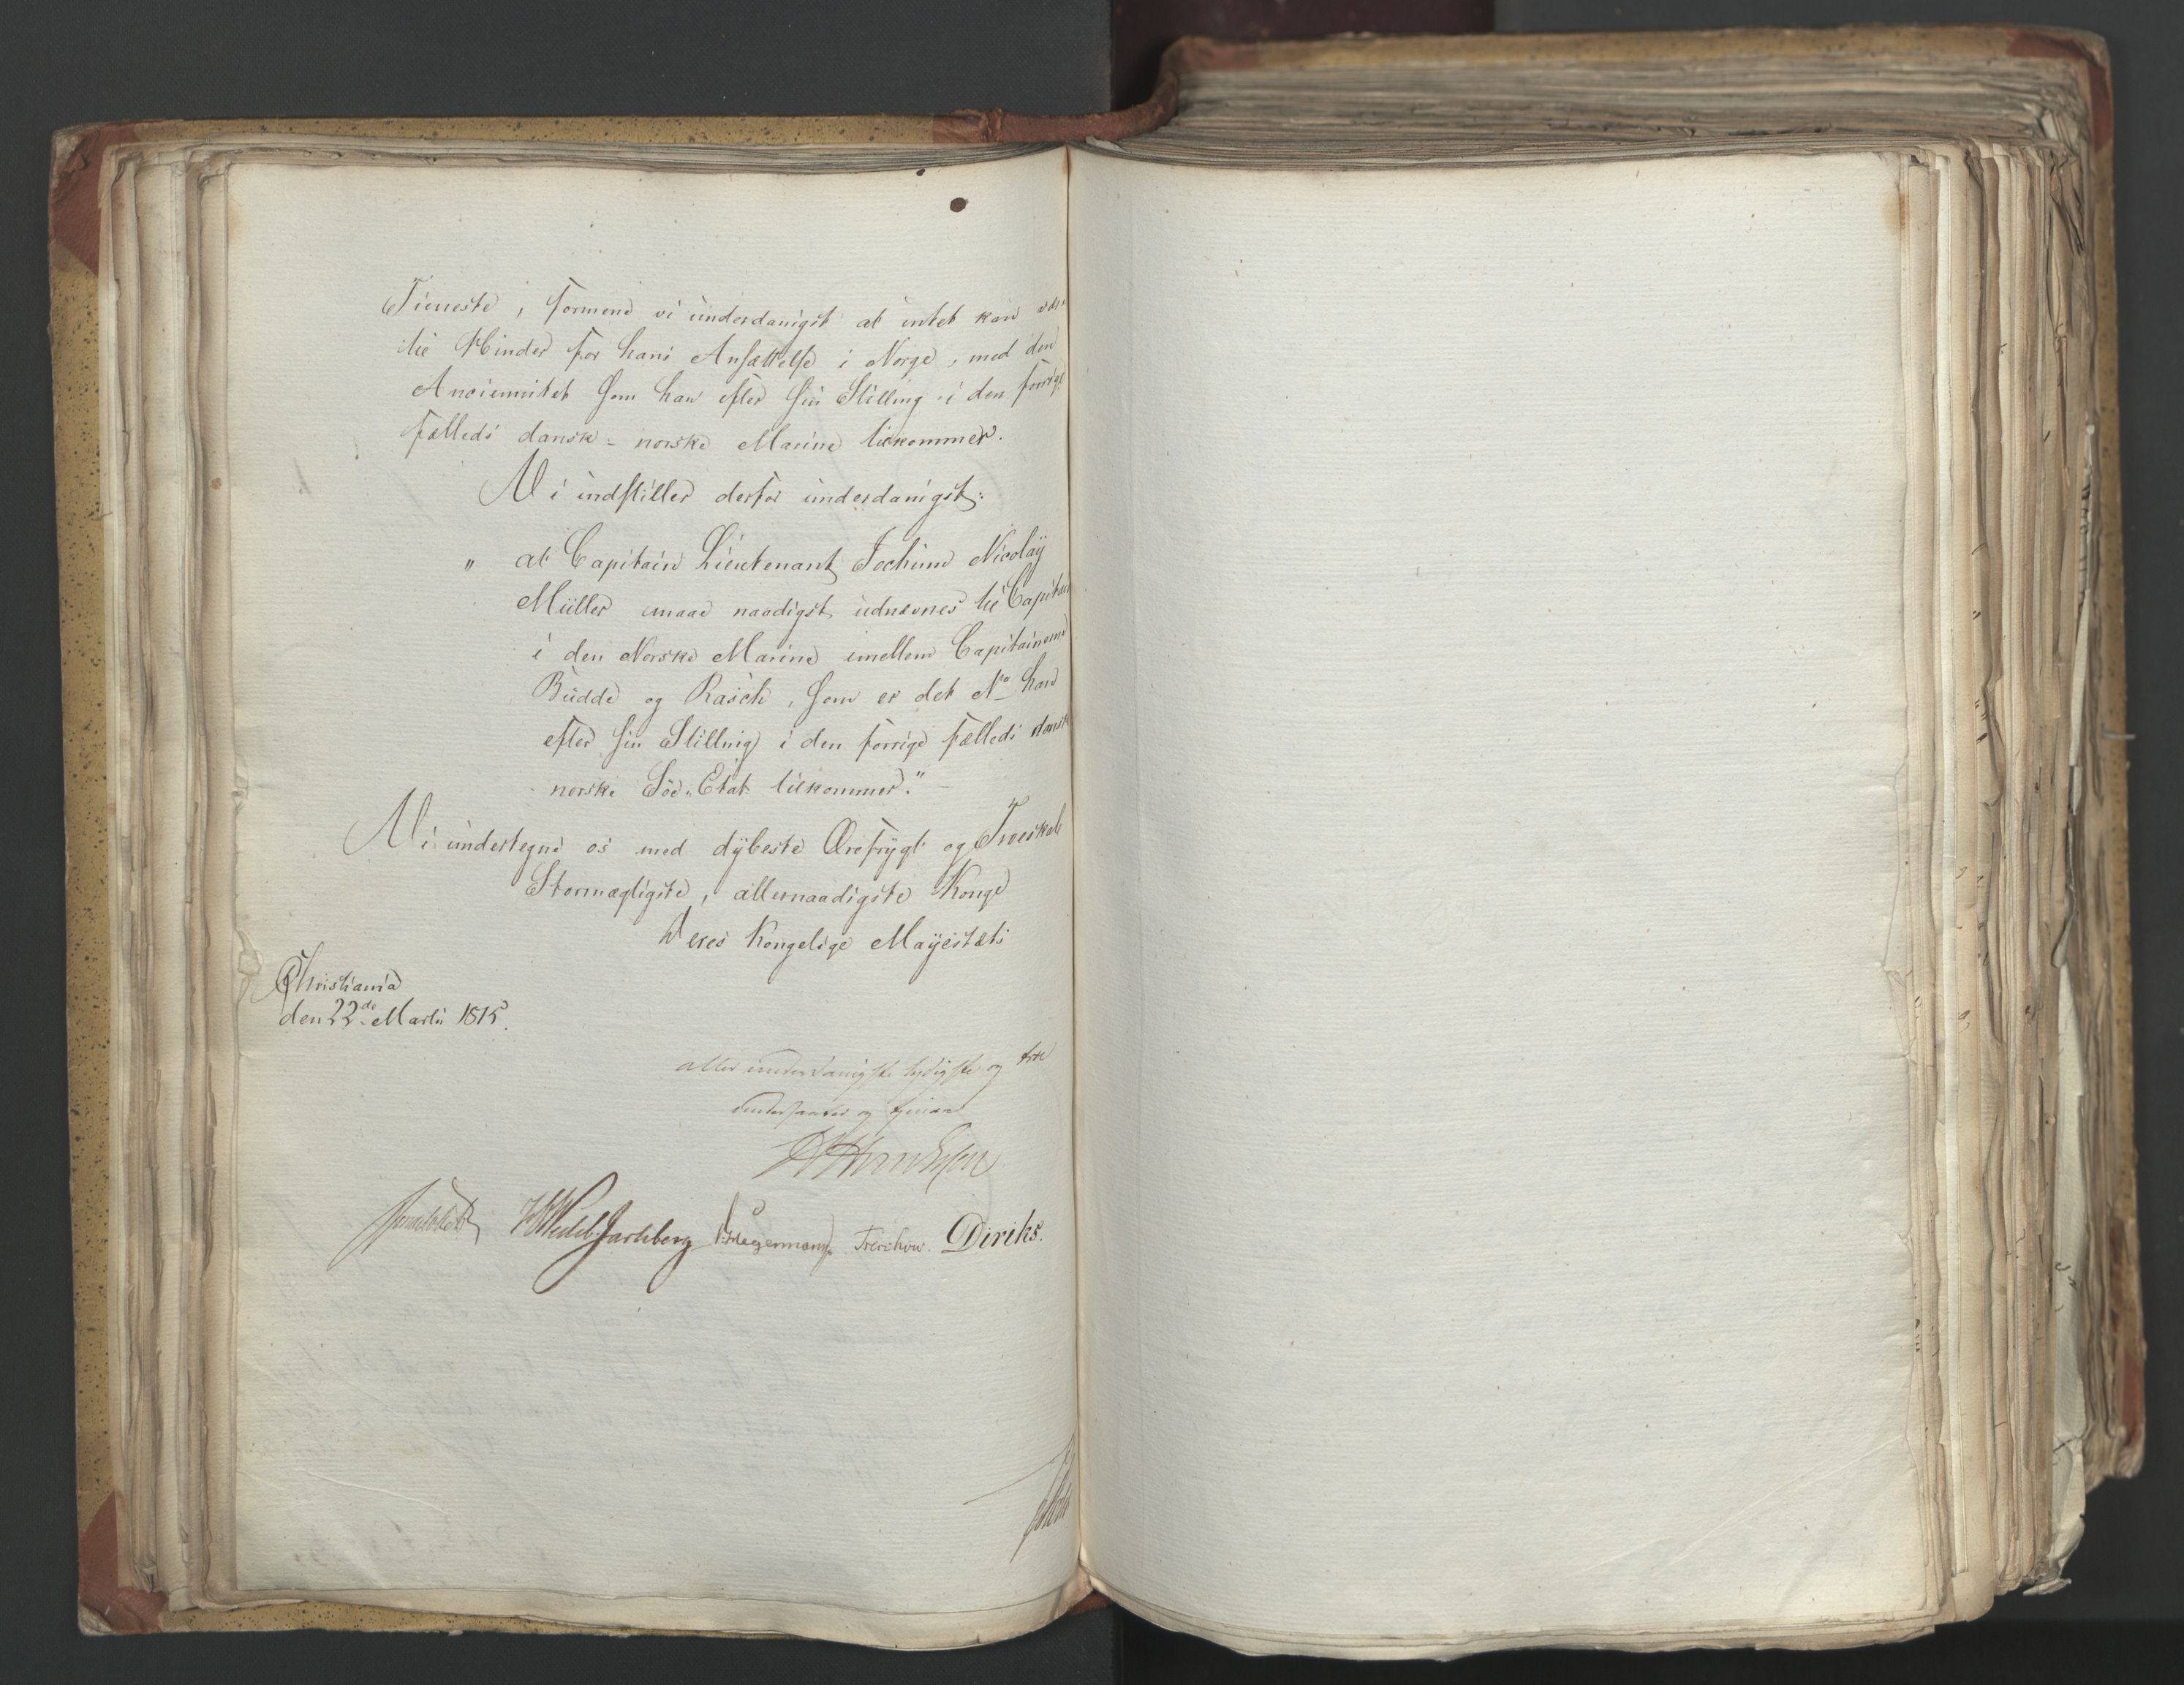 Tieneste, formene vi underdanigst at intet kan være
til Hinder for hans Ansættelse i Norge, med den
Anciennitet som han efter sin Stilling i den forrige
fælleds dansk-norske Marine tilkommer.
Vi indstiller derfor underdanigst:
" at Capitain Lieutenant Jochum Nicolaÿ
Müller maae naadigst udnævnes til Capitain
i den Norske Marine imellem Capitainerne
Budde og Rasch, som er det No han
efter sin Stilling i den forrige fælleds dansk
norske Söe-Etat tilkommer."
Vi undertegne os med dÿbeste Ærefrÿgt og Troeskab
Stormægtigste, allernaadigste Konge
Deres Kongelige Mayestæts
Christiania
den 22de Martii 1815.
allerunderdanigste lydigste og troe
undersaatter og tienere
Sommerhielm
Wedel Jarlsberg Hegermann Treschow. Diriks.